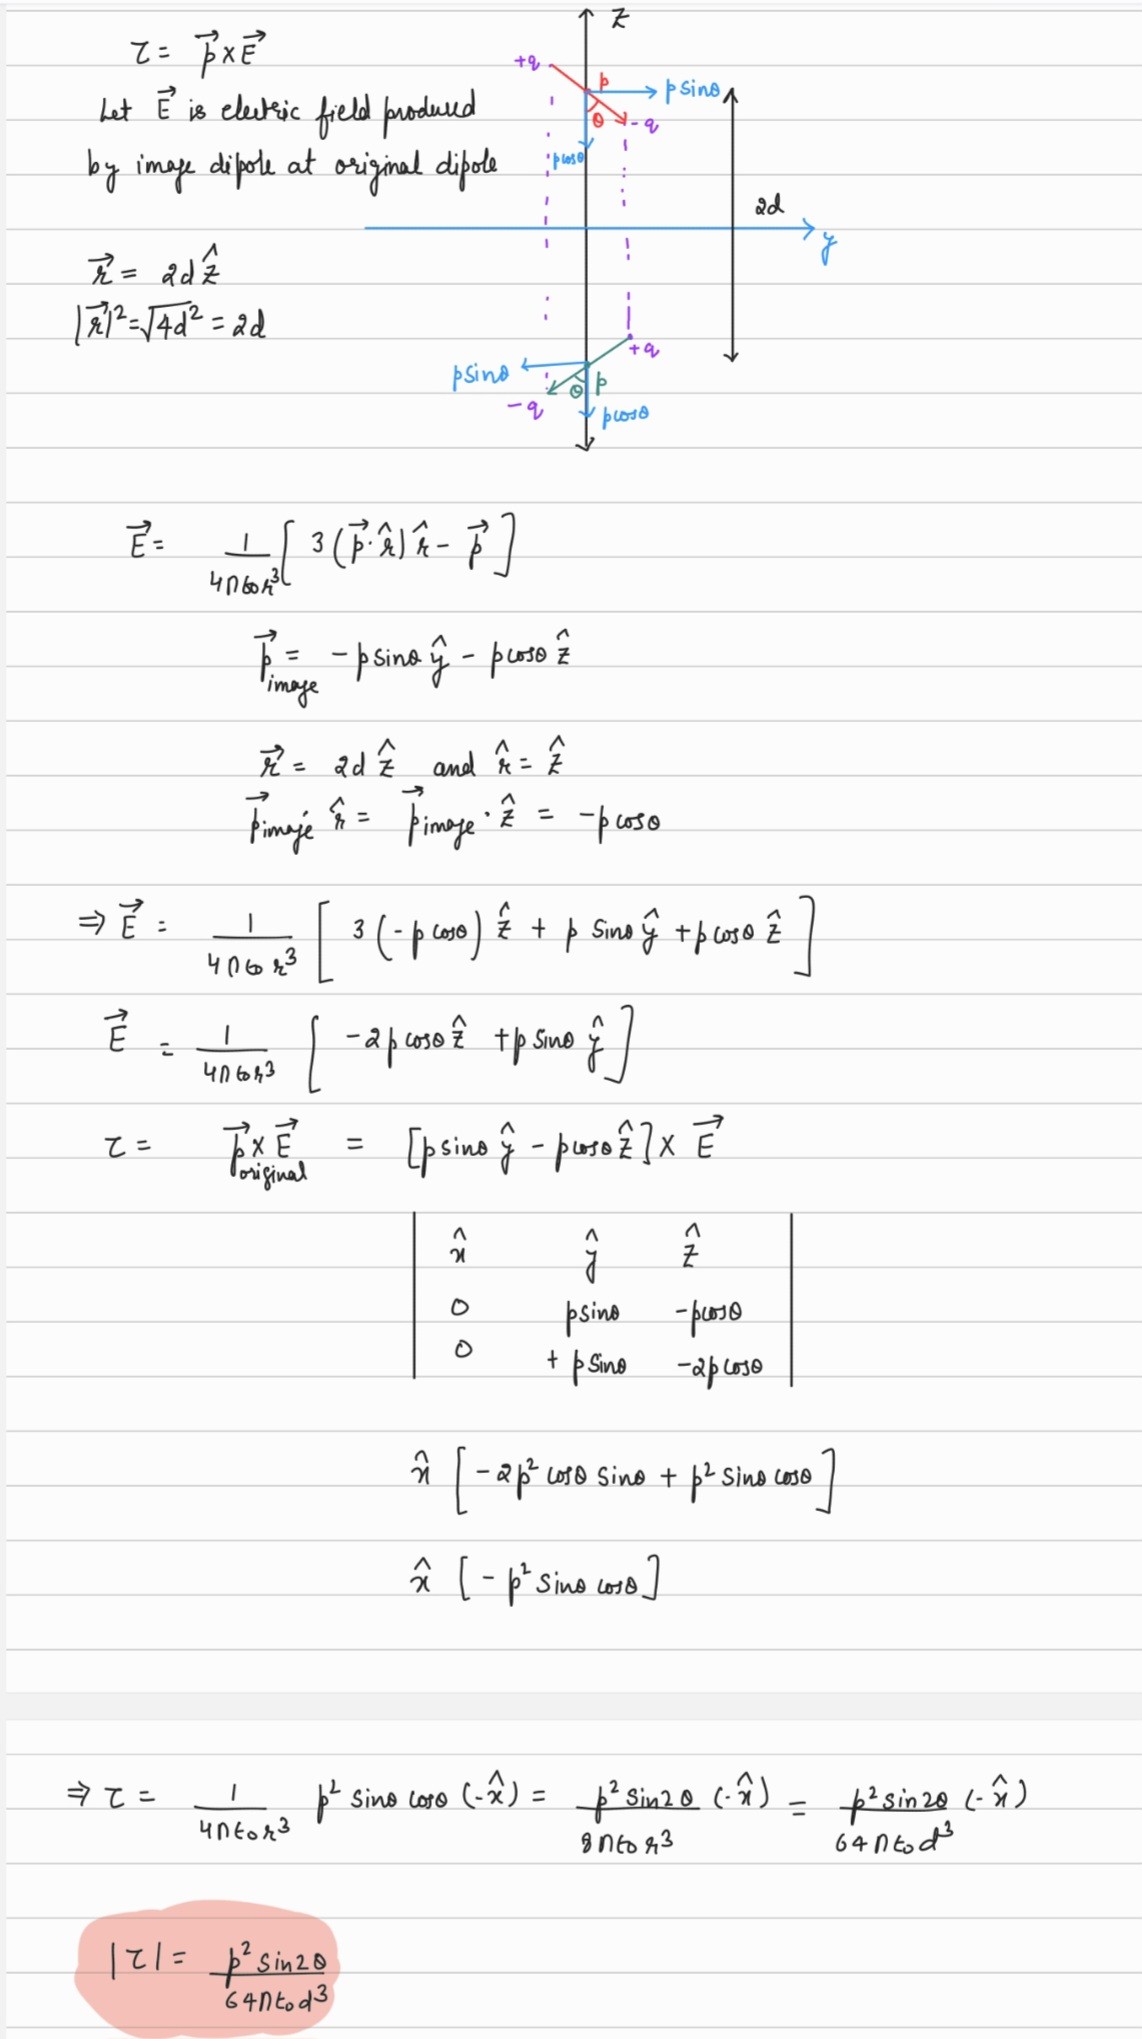 τ = p⃗ × E⃗
Let E⃗ is electric field produced
by image dipole at original dipole
r⃗ = 2d ẑ
|r⃗|² = √4d² = 2d
z
+q
p
p sinθ
θ
-q
pcosθ
2d
y
+q
psinθ
θ
p
-q
pcosθ
E⃗ = 1/4π∈₀r³ [ 3(p⃗·r̂) r̂ - p⃗ ]
p⃗image = -p sinθ ŷ - p cosθ ẑ
r⃗ = 2d ẑ and r̂ = ẑ
p⃗image · r̂ = p⃗image · ẑ = -p cosθ
⇒ E⃗ = 1/4π∈₀r³ [ 3(-p cosθ) ẑ + p sinθ ŷ + p cosθ ẑ ]
E⃗ = 1/4π∈₀r³ [ -2p cosθ ẑ + p sinθ ŷ ]
τ = p⃗original × E⃗ = [p sinθ ŷ - p cosθ ẑ] × E⃗
x̂ ŷ ẑ
0 psinθ -pcosθ
0 + p sinθ -2p cosθ
x̂ [ -2p² cosθ sinθ + p² sinθ cosθ ]
x̂ [ -p² sinθ cosθ ]
⇒ τ = 1/4π∈₀r³ p² sinθ cosθ (-x̂) = p² sin2θ/8π∈₀r³ (-x̂) = p² sin2θ/64π∈₀d³ (-x̂)
|τ| = p² sin2θ/64π∈₀d³